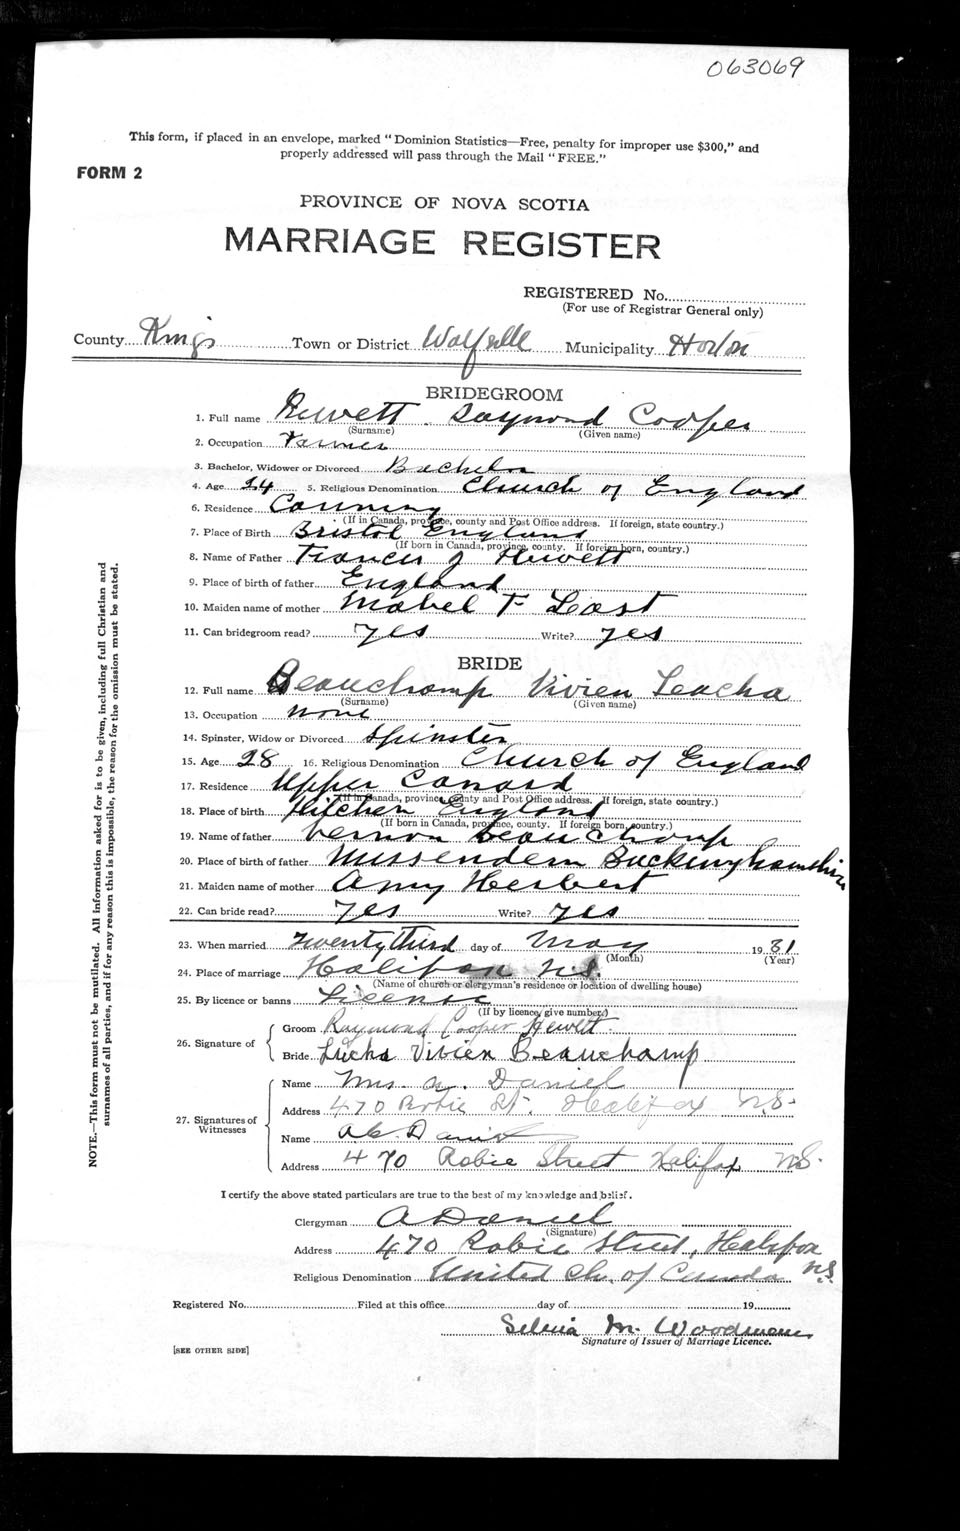 063069
This form, if placed in an envelope, marked "Dominion Statistics—Free, penalty for improper use $300," and
properly addressed will pass through the Mail "FREE."
FORM 2
PROVINCE OF NOVA SCOTIA
MARRIAGE REGISTER
REGISTERED No.
(For use of Registrar General only)
County Kings Town or District Wolfville Municipality Horton
BRIDEGROOM
1. Full name Hewett Raymond Cooper
(Surname) (Given name)
2. Occupation Farmer
3. Bachelor, Widower or Divorced Bachelor
4. Age 24 5. Religious Denomination Church of England
6. Residence Canning
(If in Canada, province, county and Post Office address. If foreign, state country.)
7. Place of Birth Bristol England
(If born in Canada, province, county. If foreign born, country.)
8. Name of Father Frances J Hewett
9. Place of birth of father England
10. Maiden name of mother Mabel F Last
11. Can bridegroom read? yes Write? yes
BRIDE
12. Full name Beauchamp Vivien Leacha
(Surname) (Given name)
13. Occupation none
14. Spinster, Widow or Divorced Spinster
15. Age 28 16. Religious Denomination Church of England
17. Residence Upper Canard
(If in Canada, province, county and Post Office address. If foreign, state country.)
18. Place of birth Hitchen England
(If born in Canada, province, county. If foreign born, country.)
19. Name of father Vernon Beauchamp
20. Place of birth of father Missendem Buckinghamshire
21. Maiden name of mother Amy Herbert
22. Can bride read? yes Write? yes
23. When married Twenty third day of May 1931
(Month) (Year)
24. Place of marriage Halifax N.S.
(Name of church or clergyman's residence or location of dwelling house)
25. By licence or banns License
(If by licence, give number.)
26. Signature of
Groom Raymond Cooper Hewett.
Bride Lucha Vivien Beauchamp
27. Signatures of Witnesses
Name Mrs. A. Daniel
Address 470 Robie St. Halifax N.S.
Name Daniel
Address 470 Robie Street Halifax N.S.
I certify the above stated particulars are true to the best of my knowledge and belief.
Clergyman A Daniel
(Signature)
Address 470 Robie Street, Halifax N.S.
Religious Denomination United Ch. of Canada
Registered No. Filed at this office day of 19
Selena M. Woodman
Signature of Issuer of Marriage Licence.
[SEE OTHER SIDE]
NOTE.—This form must not be mutilated. All information asked for is to be given, including full Christian and
surnames of all parties, and if for any reason this is impossible, the reason for the omission must be stated.